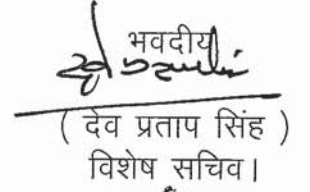 भवदीय
( देव प्रताप सिंह )
विशेष सचिव।